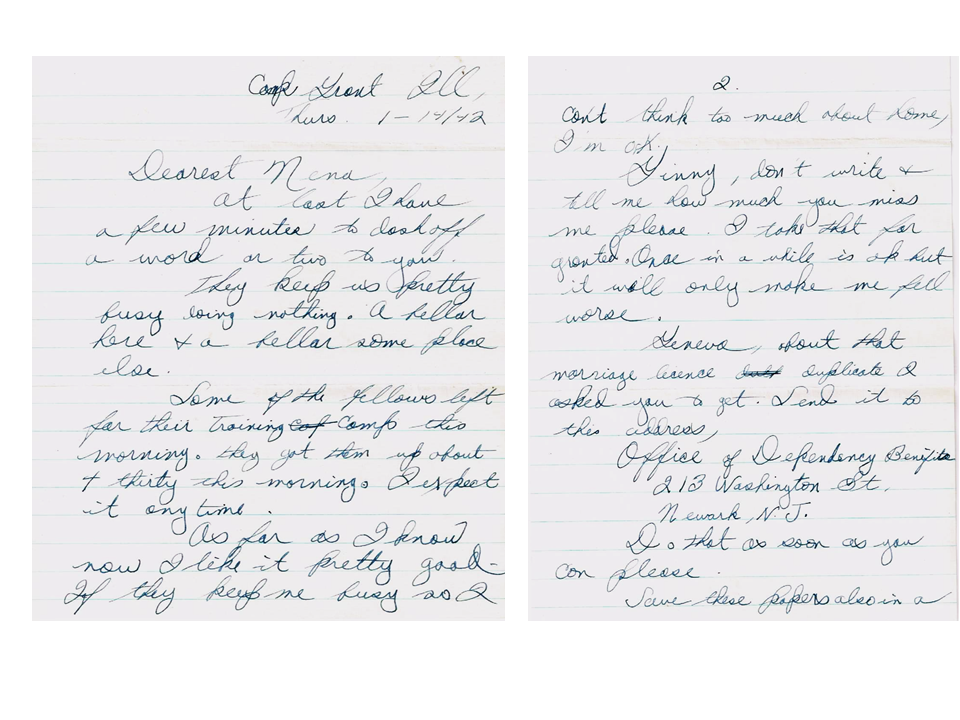 Camp Grant Ill,
Thurs. 1-14/42
Dearest Nena,
At last I have
a few minutes to dash off
a word or two to you.
They keep us pretty
busy doing nothing. A hellar
here & a hellar some place
else.
Some of the fellows left
for their Training Camp this
morning. they got them up about
+ thirty this morning. I expect
it anytime.
As far as I know
now I like it pretty good-
If they keep me busy so I
2.
can't think too much about home,
I'm ok.
Ginny, don't write &
tell me how much you miss
me please. I take that for
granted. Once in a while is ok but
it will only make me fell
worse.
Geneva, about that
marriage licence duplicate I
asked you to get. Send it to
this address,
Office of Dependency Benefits
213 Washington St.
Newark, N.J.
Do that as soon as you
can please.
Save these papers also in a